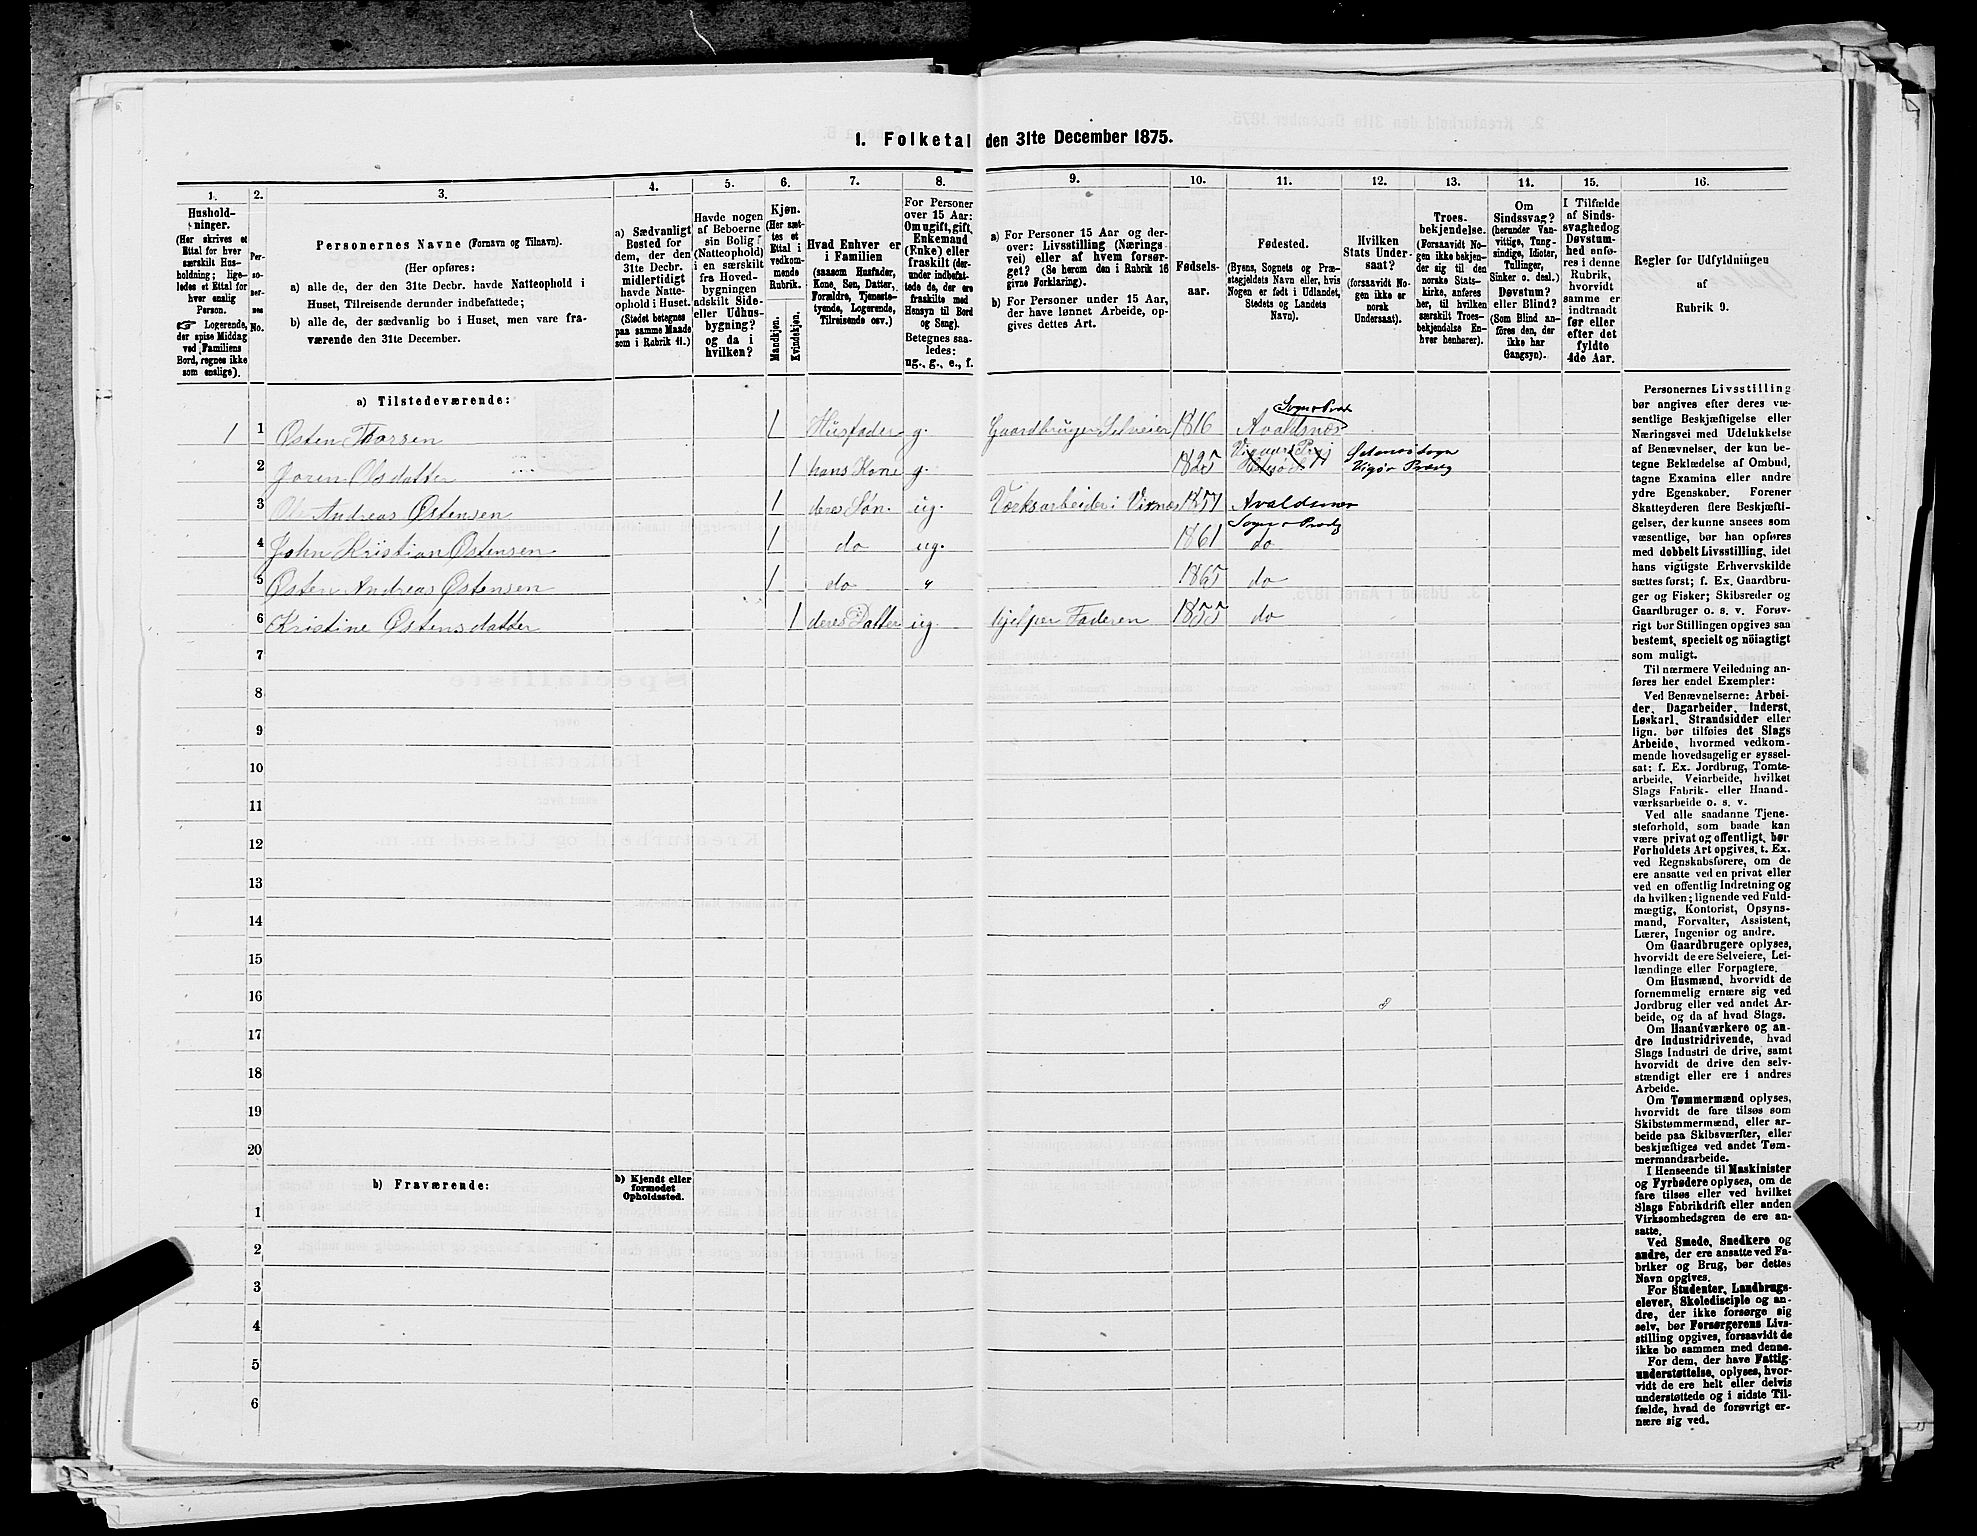 1. Folketal den 31te December 1875.
1. 2. 3. 4. 5. 6. 7. 8. 9. 10. 11. 12. 13. 14. 15. 16.
Husholdninger.
(Her skrives et
Ettal for hver
særskilt Husholdning;
ligeledes et Ettal for
hver enslig
Person.
☞ Logerende,
der spise Middag
ved Familiens
Bord, regnes ikke
som enslige).
Personernes No.
Personernes Navne (Fornavn og Tilnavn).
(Her opføres:
a) alle de, der den 31te Decbr. havde Natteophold i
Huset, Tilreisende derunder indbefattede;
b) alle de, der sædvanlig bo i Huset, men vare fraværende
den 31te December.
a) Sædvanligt
Bosted for
dem, der den
31te Decbr.
midlertidigt
havde Natteophold
i Huset.
(Stedet betegnes
paa samme Maade
som i Rubrik 11.)
Havde nogen
af Beboerne
sin Bolig
(Natteophold)
i en særskilt
fra Hovedbygningen
adskilt Side-
eller Udhusbygning?
og da i
hvilken?
Kjøn.
(Her sættes
et
Ettal i
vedkommende
Rubrik.)
Mandkjøn.
Kvindekjøn.
Hvad Enhver er
i Familien
(saasom Husfader,
Kone, Søn, Datter,
Forældre, Tjenestetyende,
Logerende,
Tilreisende osv.)
For Personer
over 15 Aar:
Om ugift, gift,
Enkemand
(Enke) eller
fraskilt (derunder
indbefattede
de, der ere
fraskilte med
Hensyn til Bord
og Seng).
Betegnes saaledes:
ug., g., e., f.
a) For Personer 15 Aar og derover:
Livsstilling (Næringsvei)
eller af hvem forsørget?
(Se herom den i Rubrik 16
givne Forklaring).
b) For Personer under 15 Aar,
der have lønnet Arbeide, opgives
dettes Art.
Fødselsaar.
Fødested.
(Byens, Sognets og Præstegjeldets
Navn, eller, hvis
Nogen er født i Udlandet,
Stedets og Landets
Navn).
Hvilken
Stats Undersaat?
(forsaavidt Nogen
ikke er
norsk
Undersaat).
Troesbekjendelse.
(Forsaavidt Nogen
ikke bekjender
sig til den
norske Statskirke,
anføres
her, til hvilken
særskilt Troesbekjendelse
Enhver
henhører).
Om
Sindssvag?
(herunder Vanvittige,
Tungsindige,
Idioter,
Tullinger,
Sinker o. desl.)
Døvstum?
eller Blind?
(Som Blind anføres
den, der
ikke har
Gangsyn).
I Tilfælde
af Sindssvaghed
og
Døvstumhed
anføres
i denne
Rubrik,
hvorvidt
samme er
indtraadt
før eller
efter det
fyldte
4de Aar.
Regler for Udfyldningen
af
Rubrik 9.
a) Tilstedeværende:
1 1 Østen Torsen 1 Husfader g. Gaardbruger Selveier 1816 Avaldsnæs Sogn &
2 Joren Olsdatter 1 hans Kone g. 1825
3 Andreas Østensen 1 deres Søn ug. Værksarbeider i Vixnæs 1857 Avaldsnæs Sogn &
4 John Kristian Østensen 1 do ug. 1861 do
5 Østen Andreas Østensen 1 do " 1865 do
6 Kristine Østensdatter 1 deres Datter ug. hjelper Faderen 1855 do
7
8
9
10
11
12
13
14
15
16
17
18
19
20
b) Fraværende:
b) Kjendt eller
formodet
Opholdssted.
1
2
3
4
5
6
Personernes Livsstilling
bør angives efter deres væsentlige
Beskjæftigelse eller
Næringsvei med Udelukkelse
af Benævnelser, der kun betegne
Beklædelse af Ombud,
tagne Examina eller andre
ydre Egenskaber. Forener
Skatteyderen flere Beskjæftigelser,
der kunne ansees som
væsentlige, bør han opføres
med dobbelt Livsstilling, idet
hans vigtigste Erhvervskilde
sættes først; f. Ex. Gaardbruger
og Fisker; Skibsreder og
Gaardbruger o. s. v. Forøvrigt
bør Stillingen opgives saa
bestemt, specielt og nöiagtigt
som muligt.
Til nærmere Veiledning anføres
her endel Exempler:
Ved Benævnelserne: Arbeider,
Dagarbeider, Inderst,
Løskarl, Strandsidder eller
lign. bør tilføies det Slags
Arbeide, hvormed vedkommende
hovedsagelig er sysselsat:
f. Ex. Jordbrug, Tomtearbeide,
Veiarbeide, hvilket
Slags Fabrik- eller Haandværksarbeide
o. s. v.
Ved alle saadanne Tjenesteforhold,
som baade kan
være privat og offentligt, bør
Forholdets Art opgives, t. Ex.
ved Regnskabsførere, om de
ere ansatte ved en privat eller
ved en offentlig Indretning og
da hvilken; lignende ved Fuldmægtig,
Kontorist, Opsynsmand,
Forvalter, Assistent,
Lærer, Ingeniør og andre.
Om Gaardbrugere oplyses,
hvorvidt de ere Selveiere, Leilændinge
eller Forpagtere.
Om Husmænd, hvorvidt de
fornemmelig ernære sig ved
Jordbrug eller ved andet Arbeide,
og da af hvad Slags.
Om Haandværkere og andre
Industridrivende, hvad
Slags Industri de drive, samt
hvorvidt de drive den selvstændigt
eller ere i andres
Arbeide.
Om Tømmermænd oplyses,
hvorvidt de fare tilsøs som
Skibstømmermænd, eller arbeide
paa Skibsværfter, eller
beskjæftiges ved andet Tømmermandsarbeide.
I Henseende til Maskinister
og Fyrbødere oplyses, om de
fare tilsøs eller ved hvilket
Slags Fabrikdrift eller anden
Virksomhedsgren de ere ansatte.
Ved Smede, Snedkere og
andre, der ere ansatte ved Fabriker
og Brug, bør dettes
Navn opgives.
For Studenter, Landbrugselever,
Skoledisciple og andre,
der ikke forsørge sig
selv, bør Forsørgerens Livsstilling
opgives, forsaavidt de
ikke bo sammen med denne.
For dem, der have Fattigunderstøttelse,
oplyses, hvorvidt
de ere helt eller delvis
understøttede og i sidste Tilfælde,
hvad de forøvrigt ernære
sig ved.